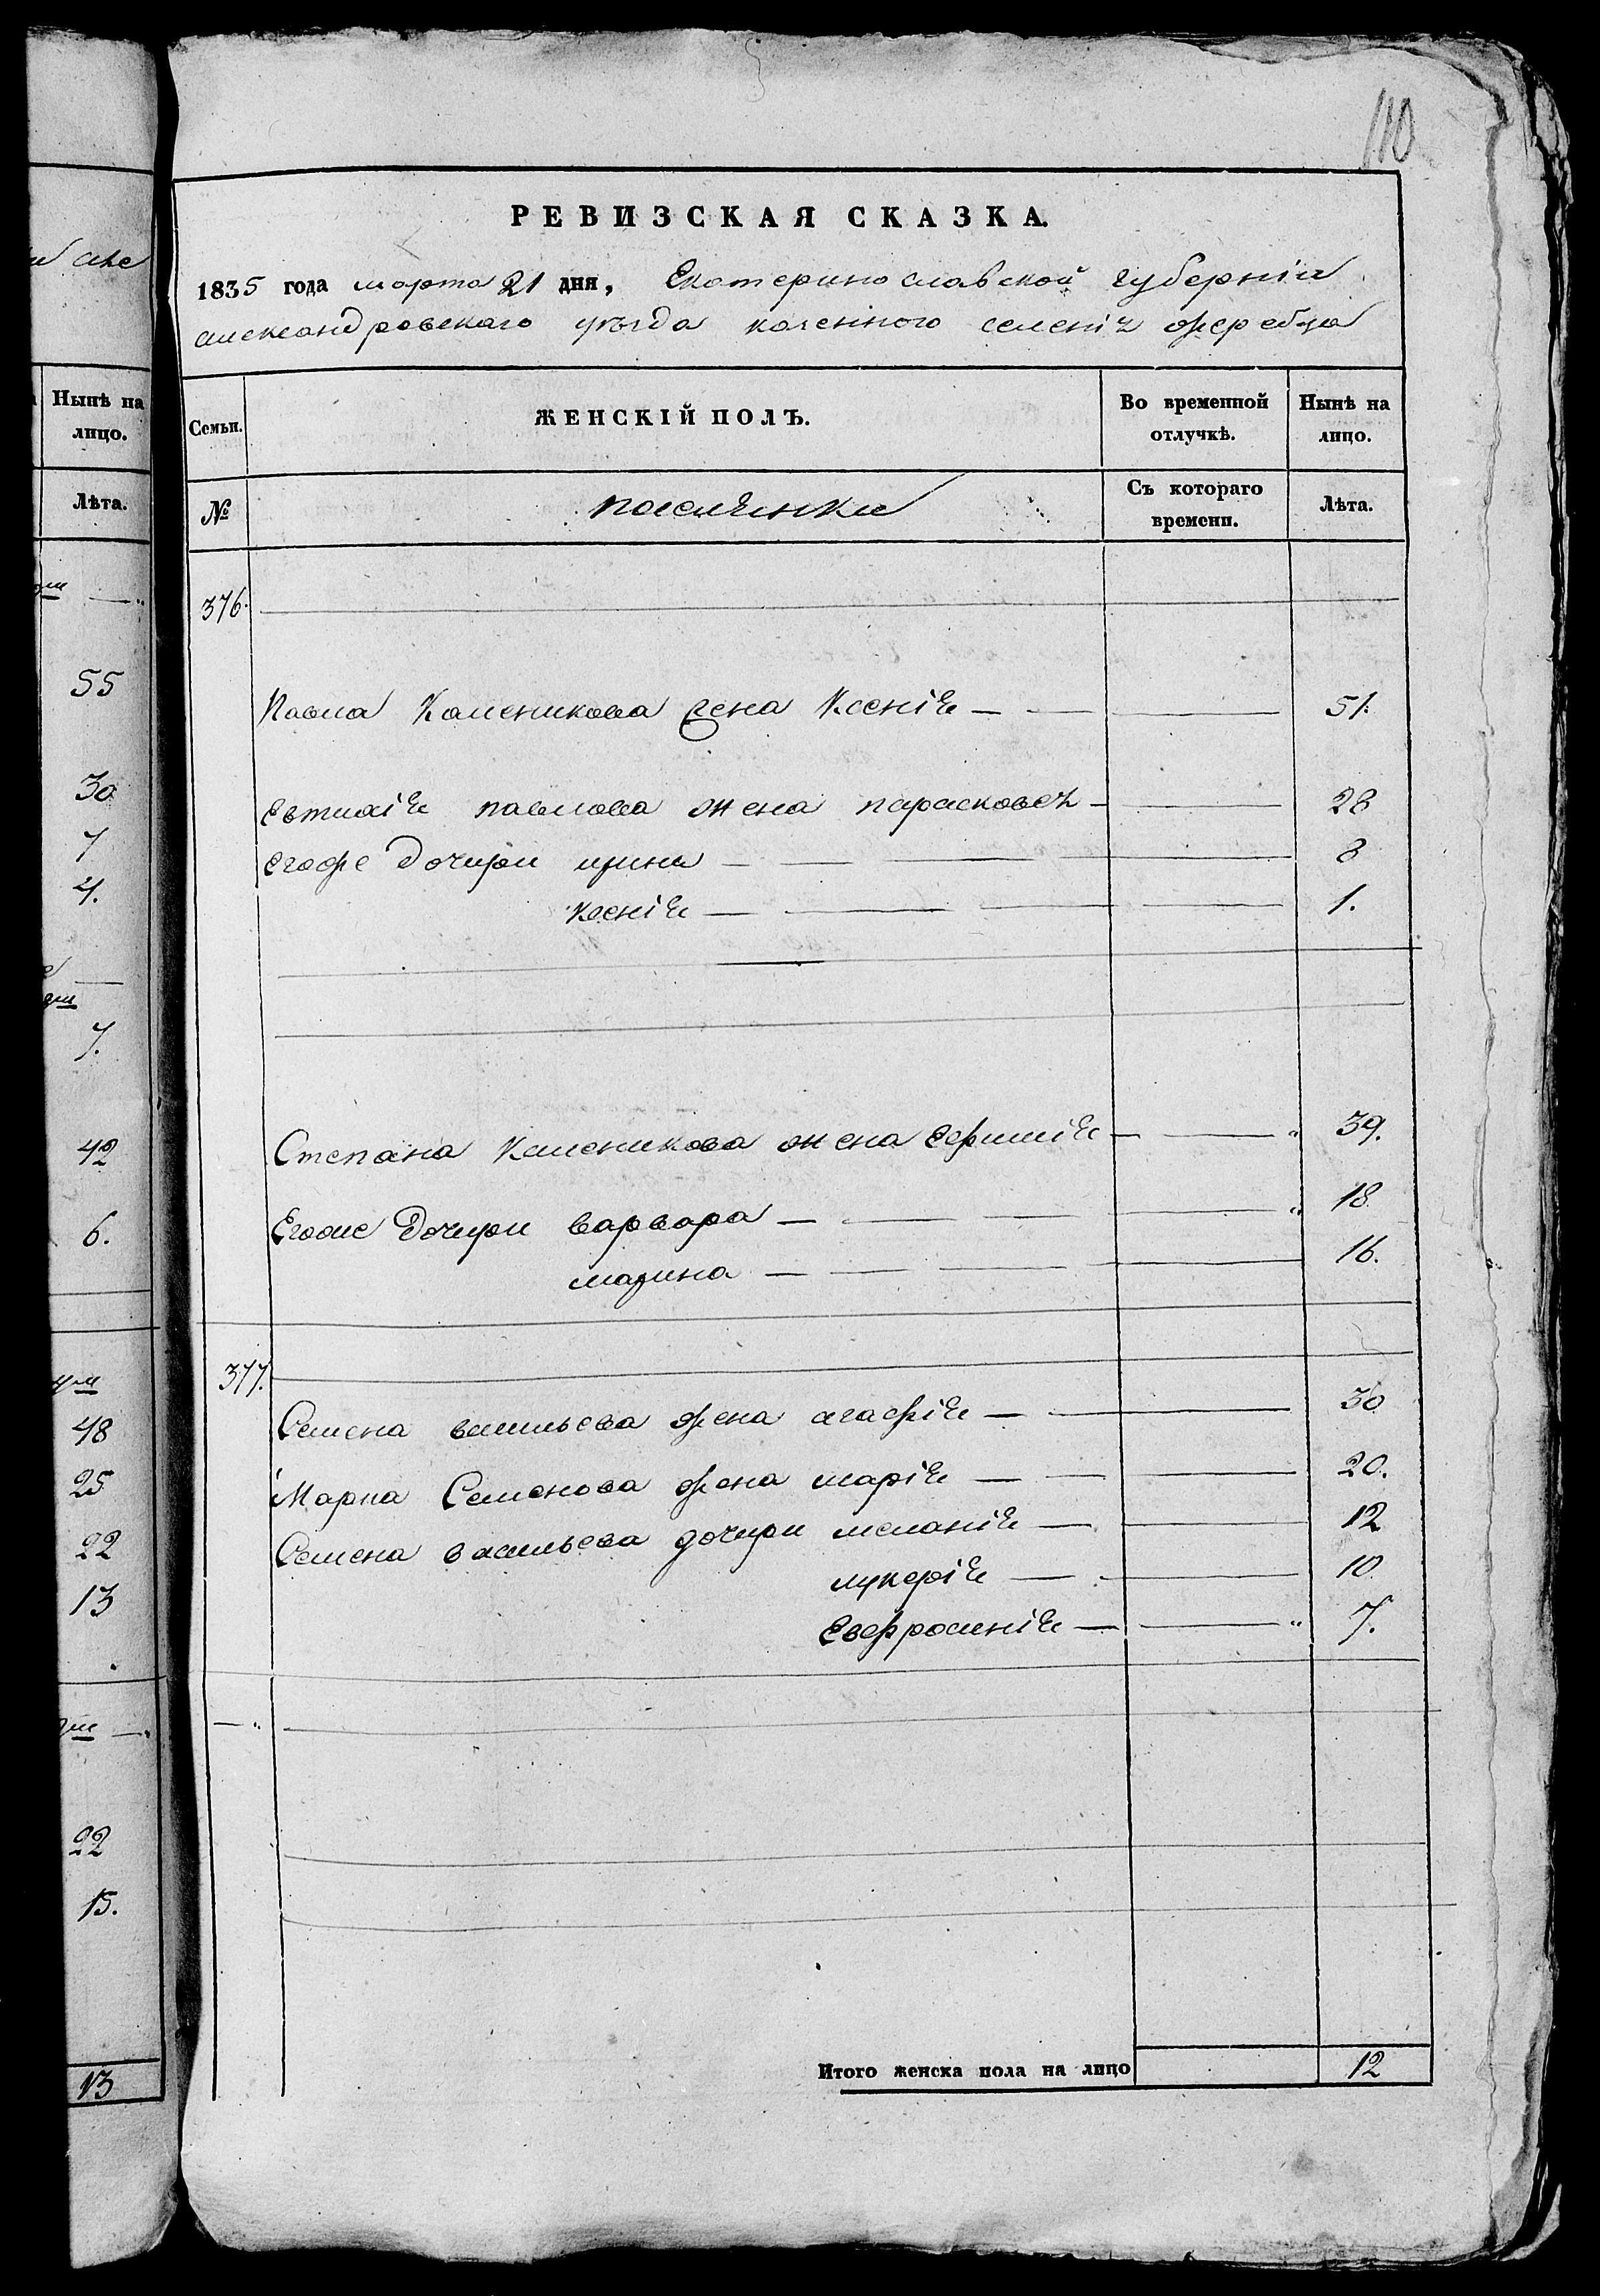 110
РЕВИЗСКАЯ СКАЗКА.
1835 года марта 21 дня, Екатеринославской губерніи
александровскаго уѣзда казенного селенія жеребца
Семьи.
ЖЕНСКІЙ ПОЛЪ.
Во временной отлучкѣ.
Нынѣ на лицо.
№
поселянки
Съ котораго времени.
Лѣта.
376.
Павла Каленикова жена Ксенія — 51.
Евтихія павлова жена парасковея — 28
Егоже дочери ирина — 8
Ксенія — 1.
Степана Каленикова жена — 39.
Егоже дочери варвара — 18
марина — 16.
377.
Семена васильева жена агафія — 30
Марка Семенова жена марія — 20.
Семена васильева дочери меланія — 12
лукерія — 10
Евфросинія — 7.
Итого женска пола на лицо 12
Нынѣ на лицо.
Лѣта.
55
30
7
4.
7.
42
6.
48
25
22
13
22
15.
13